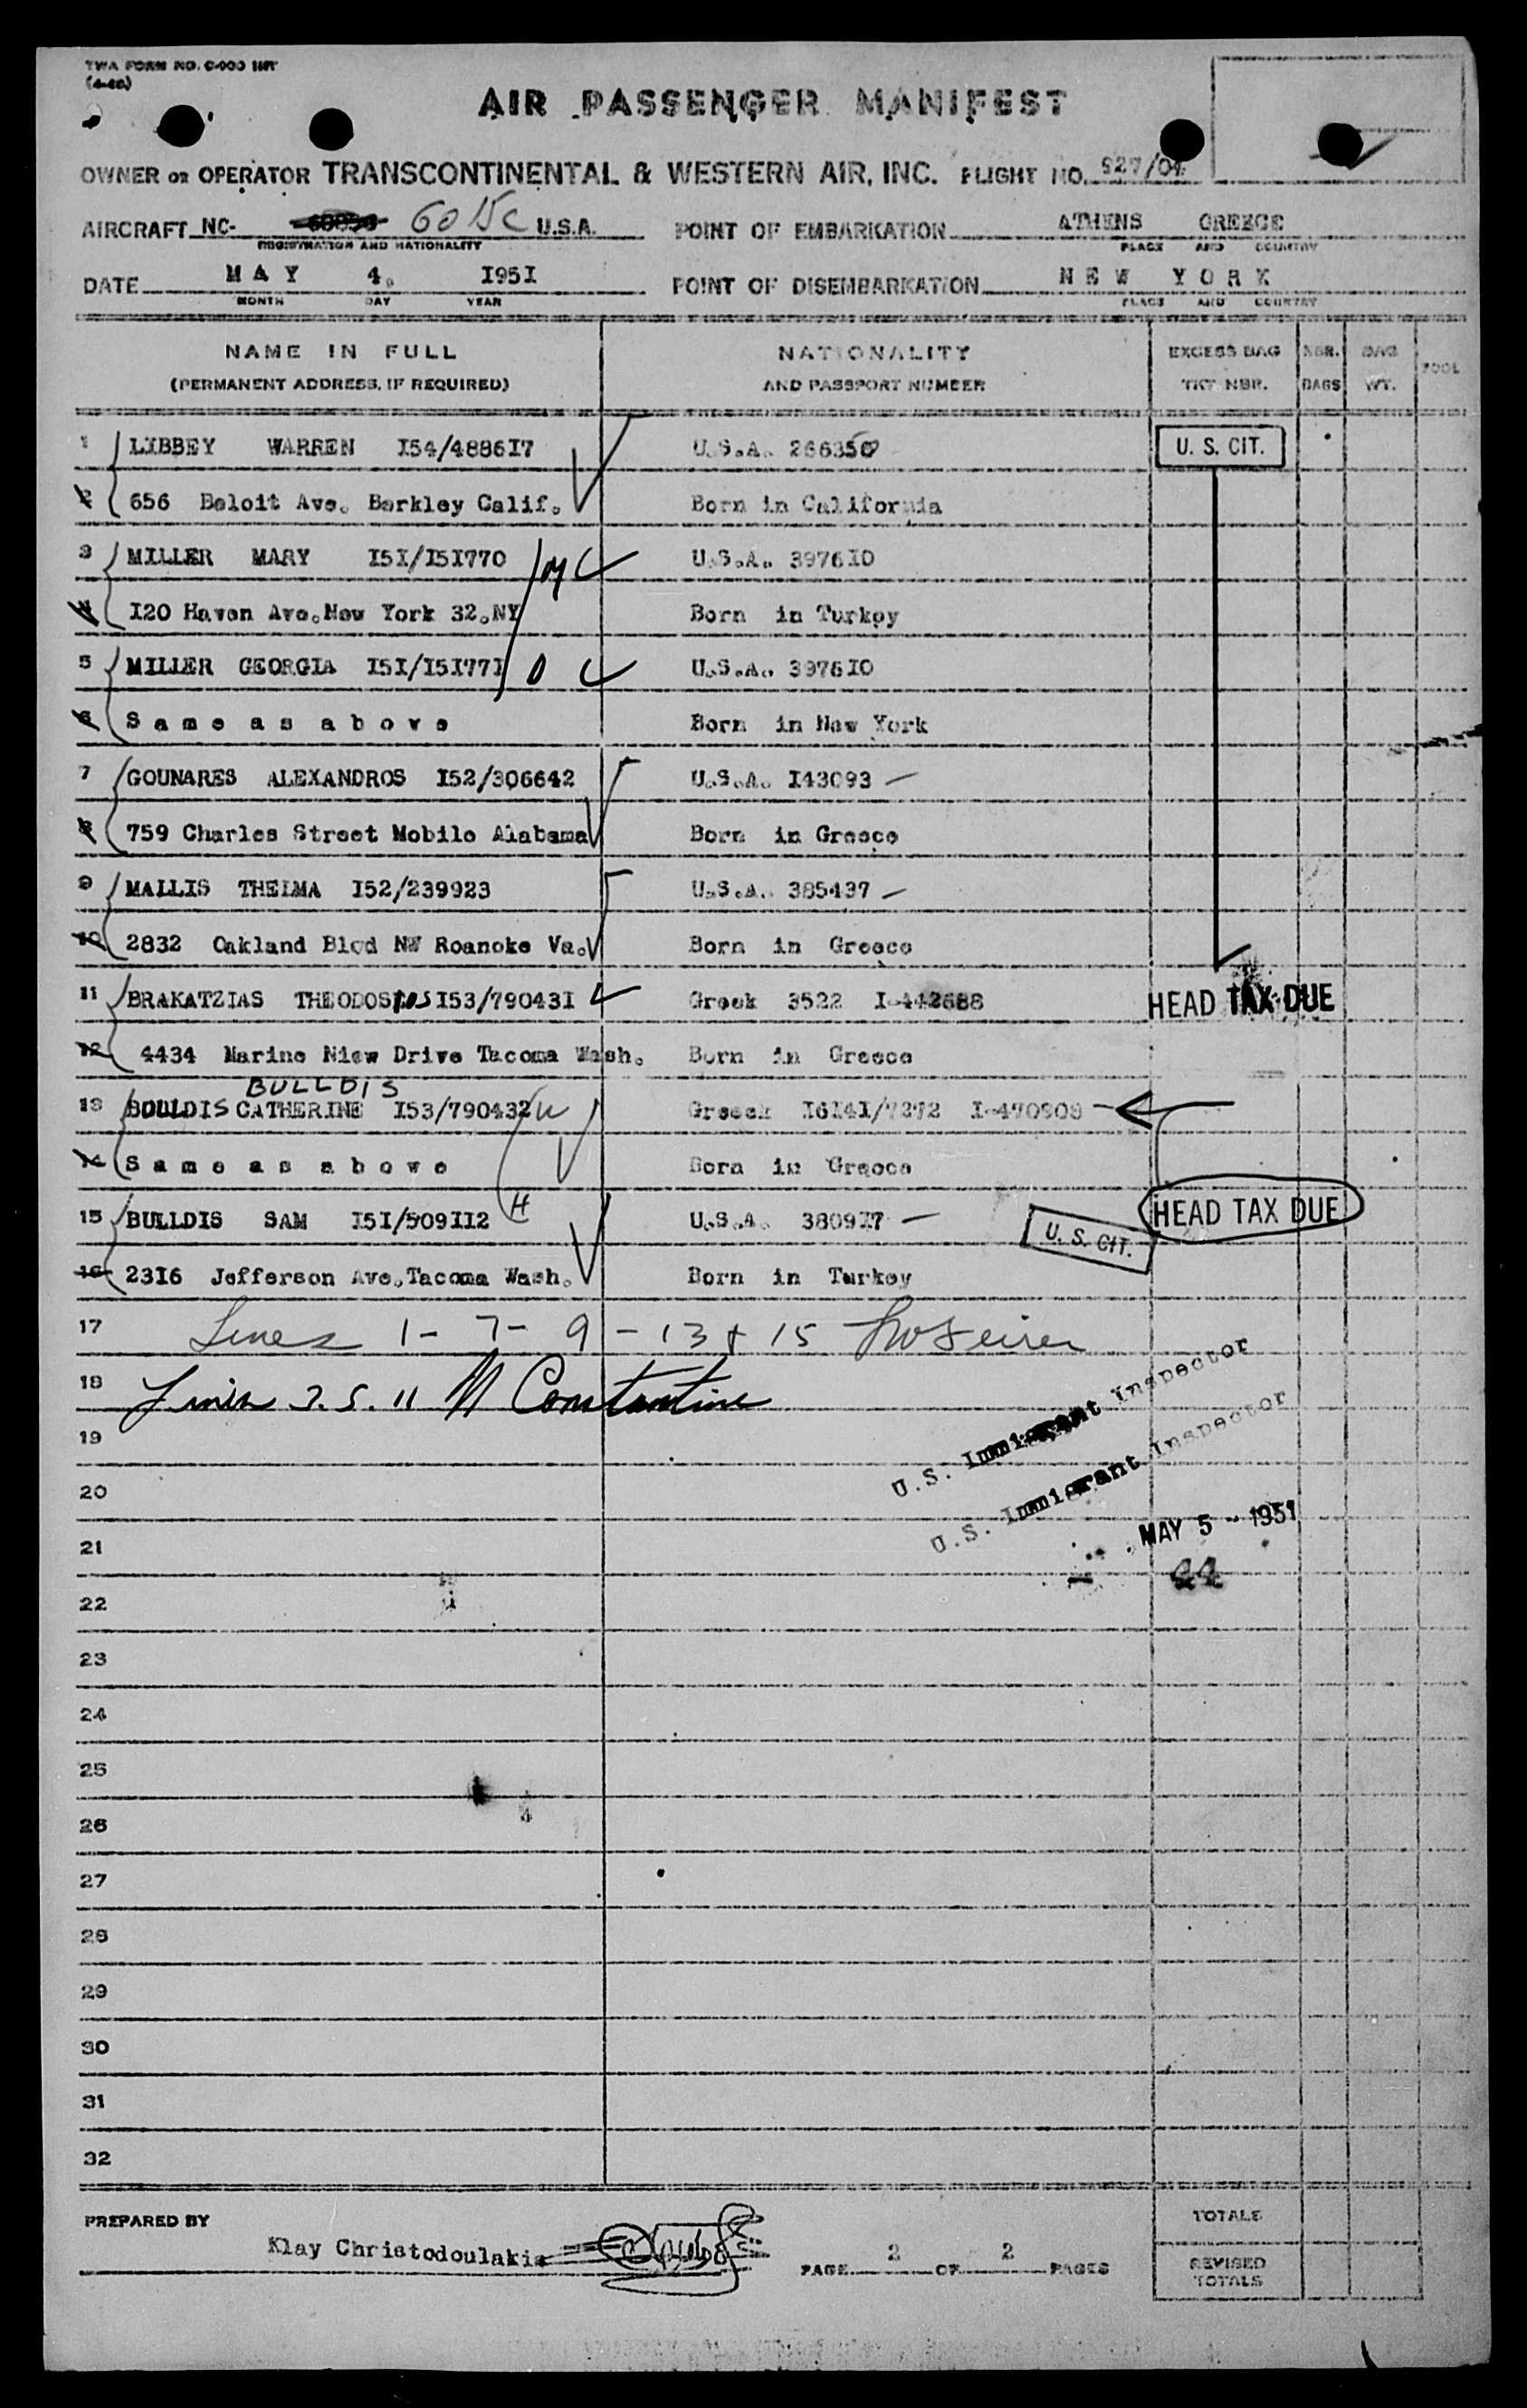 (4-48)
AIR PASSENGER MANIFEST
OWNER OR OPERATOR TRANSCONTINENTAL & WESTERN AIR, INC. FLIGHT NO. 927/04
AIRCRAFT NC- 6015C U.S.A. POINT OF EMBARKATION ATHENS GREECE
REGISTRATION AND NATIONALITY PLACE AND COUNTRY
DATE MAY 4, I95I POINT OF DISEMBARKATION NEW YORK
MONTH DAY YEAR PLACE AND COUNTRY
NAME IN FULL NATIONALITY EXCESS BAG NBR. BAG POOL
(PERMANENT ADDRESS, IF REQUIRED) AND PASSPORT NUMBER TKT NBR. BAGS WT.
1 LIBBEY WARREN I54/4886I7 U.S.A. 266350 U. S. CIT.
2 656 Beloit Ave. Berkley Calif. Born in California
3 MILLER MARY I5I/I5I770 M U.S.A. 3976I0
4 I20 Haven Ave.New York 32.NY Born in Turkey
5 MILLER GEORGIA I5I/I5I77I D U.S.A. 3976I0
6 Same as above Born in New York
7 GOUNARES ALEXANDROS I52/306642 U.S.A. I43093
8 759 Charles Street Mobile Alabama Born in Greece
9 MALLIS THELMA I52/239923 U.S.A. 385437
10 2832 Oakland Blvd NW Roanoke Va. Born in Greece
11 BRAKATZIAS THEODOSIOS I53/79043I Greek 3522 I-442688 HEAD TAX DUE
12 4434 Marine Niew Drive Tacoma Wash. Born in Greece
BULLDIS
13 BOULDIS CATHERINE I53/790432 W Greeek I6I4I/7272 I-470908
14 Same as above Born in Greece
15 BULLDIS SAM I5I/509II2 H U.S.A. 3809I7 U. S. CIT. HEAD TAX DUE
16 23I6 Jefferson Ave.Tacoma Wash. Born in Turkey
17 Lines 1- 7- 9 - 13 + 15
18 Lines 3. 5. 11 M Constantine
U.S. Immigrant Inspector
19
U.S. Immigrant Inspector
20
MAY 5 - 1951
21
22
23
24
25
26
27
28
29
30
31
32
PREPARED BY TOTALS
Klay Christodoulakis PAGE 2 OF 2 PAGES REVISED TOTALS